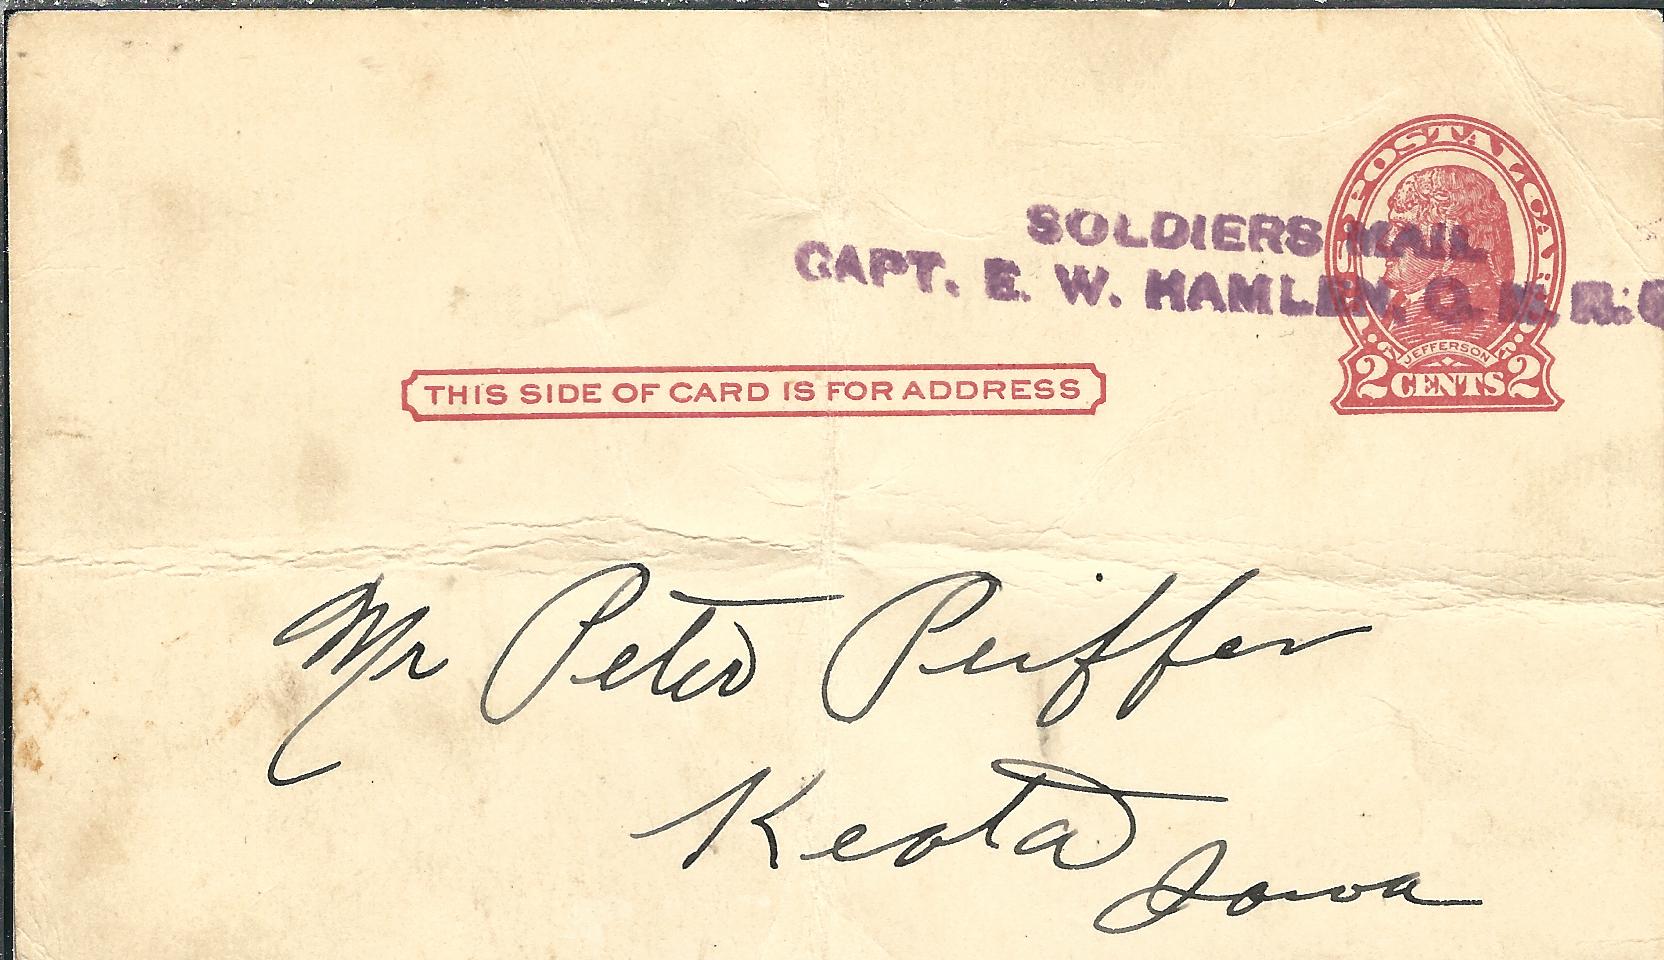 POSTAL CA
SOLDIERS MAIL
CAPT. E. W. HAMLEN, Q. M. R. C
JEFFERSON
2 CENTS 2
THIS SIDE OF CARD IS FOR ADDRESS
Mr Peter Peiffer
Keota
Iowa